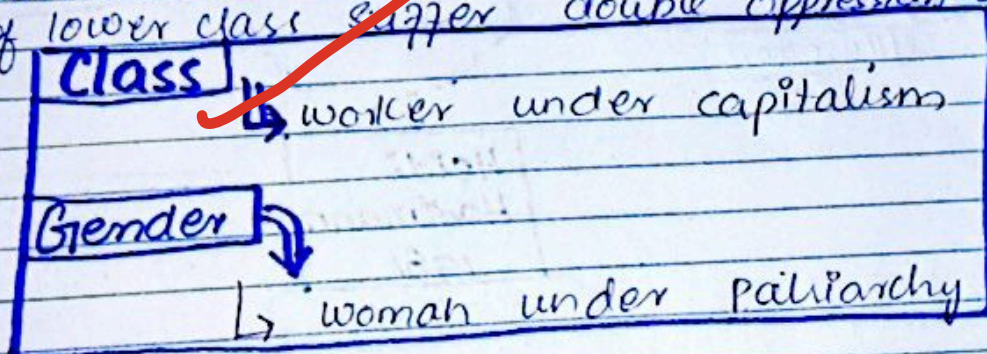 of lower class suffer double oppression
Class
worker under capitalism
Gender
woman under patriarchy